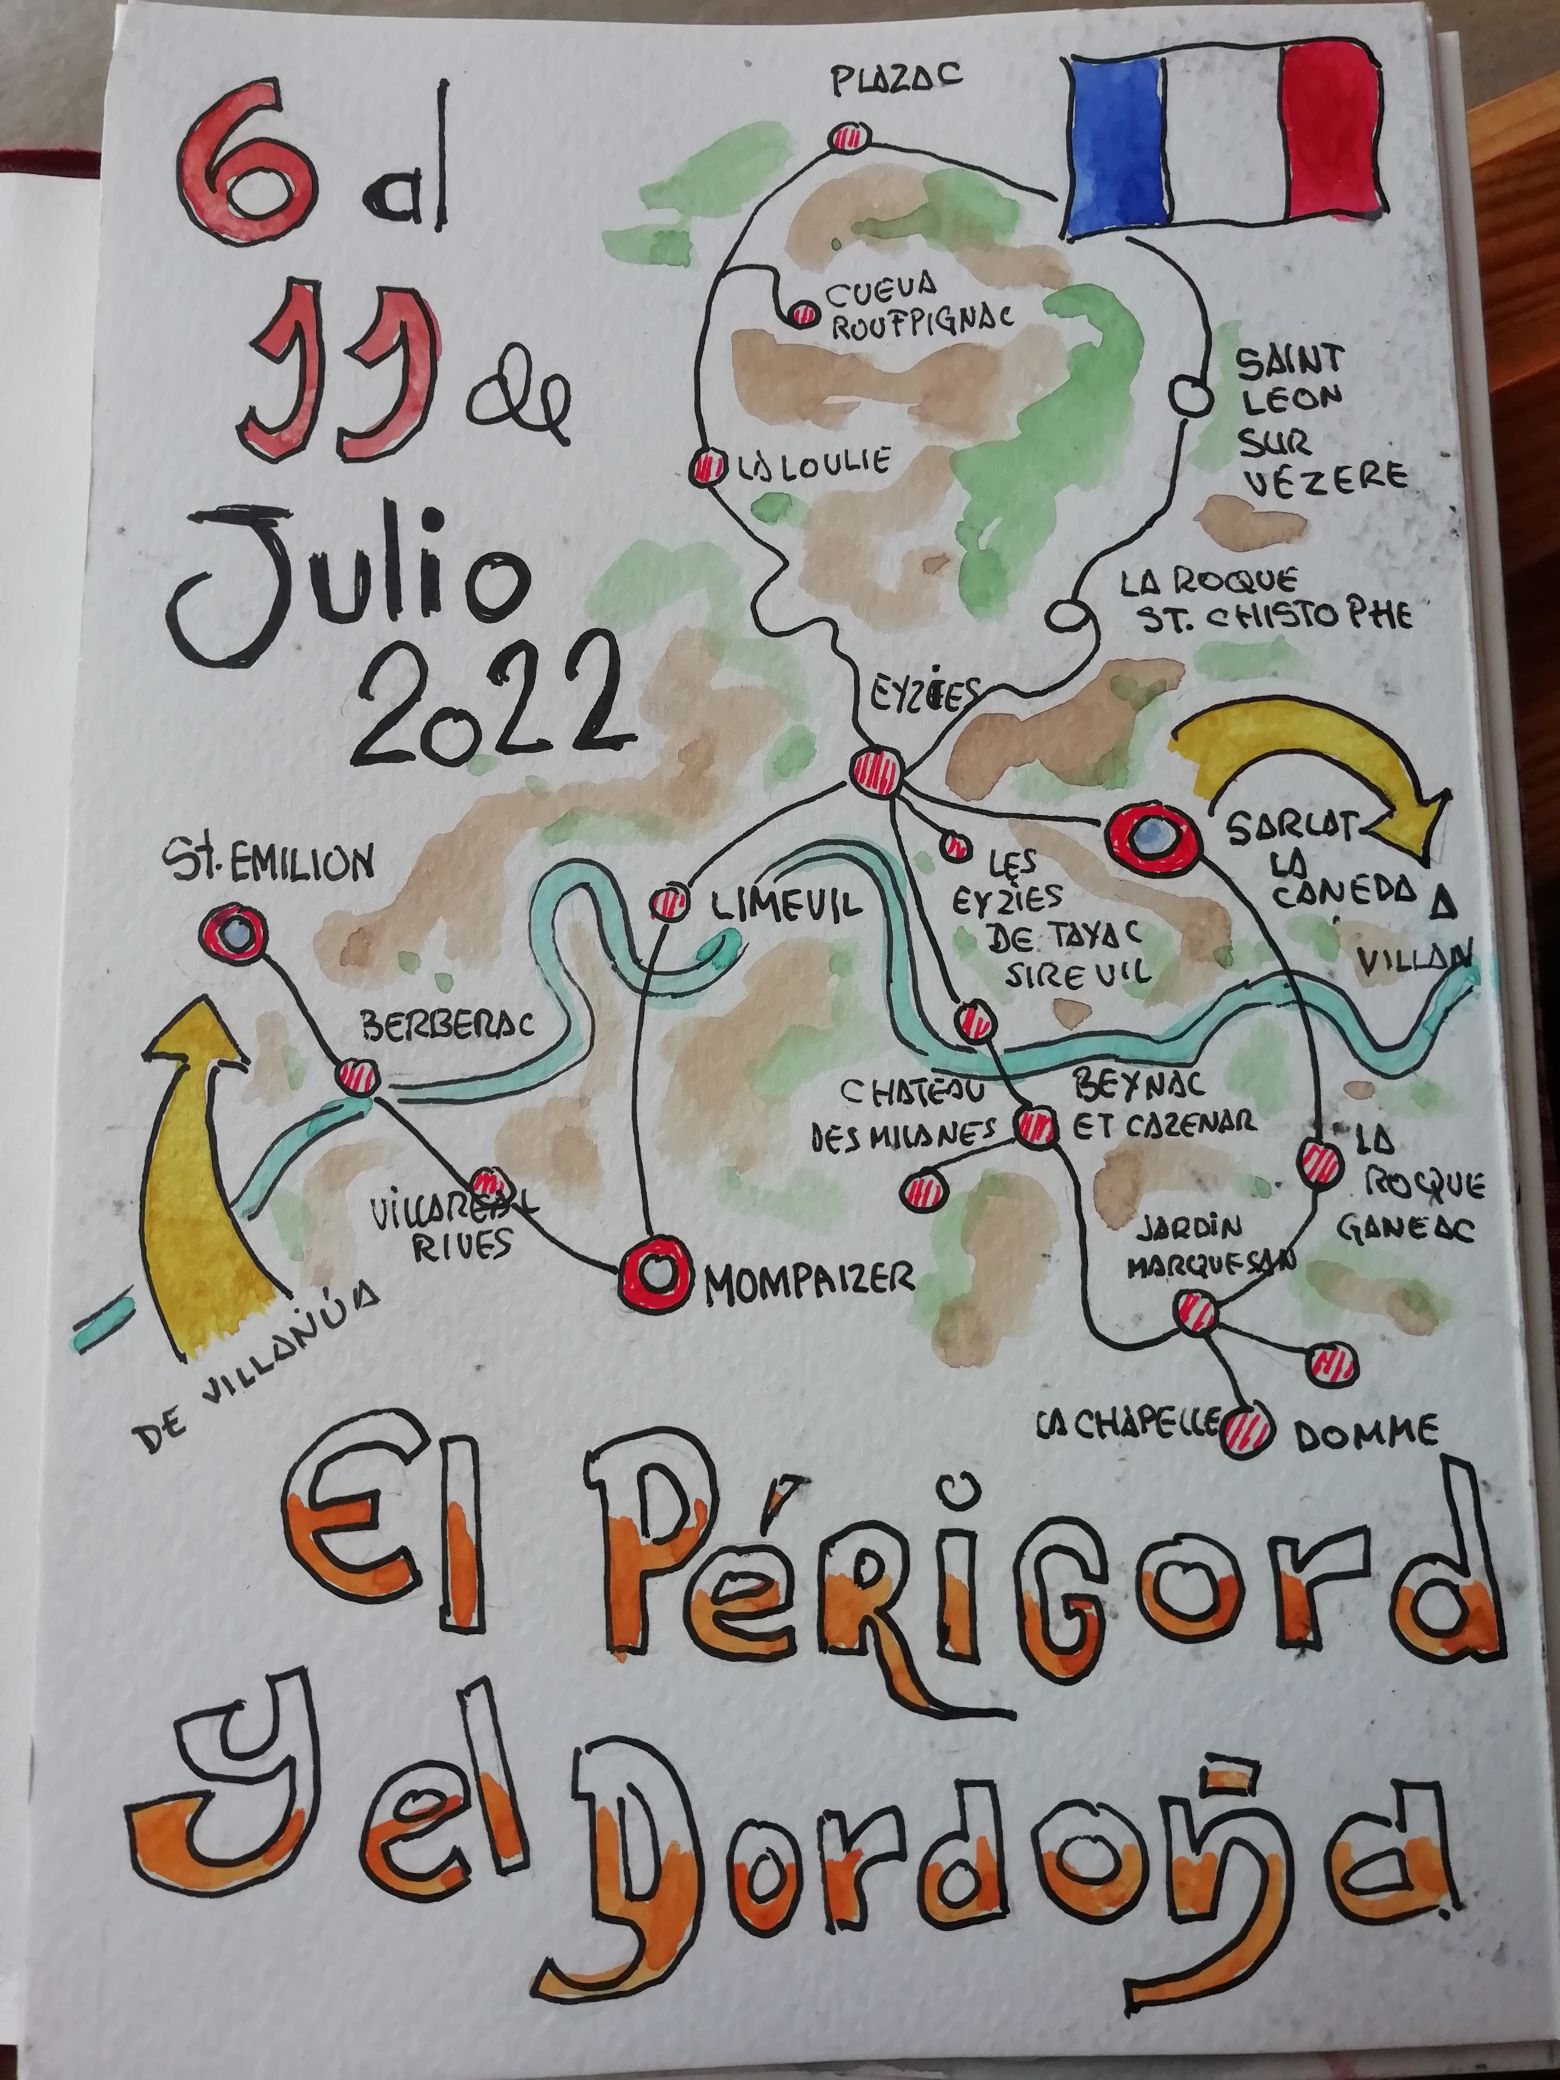 6 al
11 de
Julio
2022
PLAZAC
CUEVA
ROUFPIGNAC
SAINT
LEON
SUR
VÉZERE
LA LOULIE
LA ROQUE
ST. CHISTOPHE
EYZIES
SARLAT
LA
CANEDA A
VILLAN
ST. EMILION
LIMEUIL
LES
EYZIES
DE TAYAC
SIREUIL
BERBERAC
CHATEAU
DES MILANES
BEYNAC
ET CAZENAR
LA
ROCQUE
GANEAC
VILLAREAL
RIVES
JARDIN
MARQUESAN
MOMPAIZER
DE VILLANÚA
LA CHAPELLE
DOMME
El PéRiGord
y el Dordoña